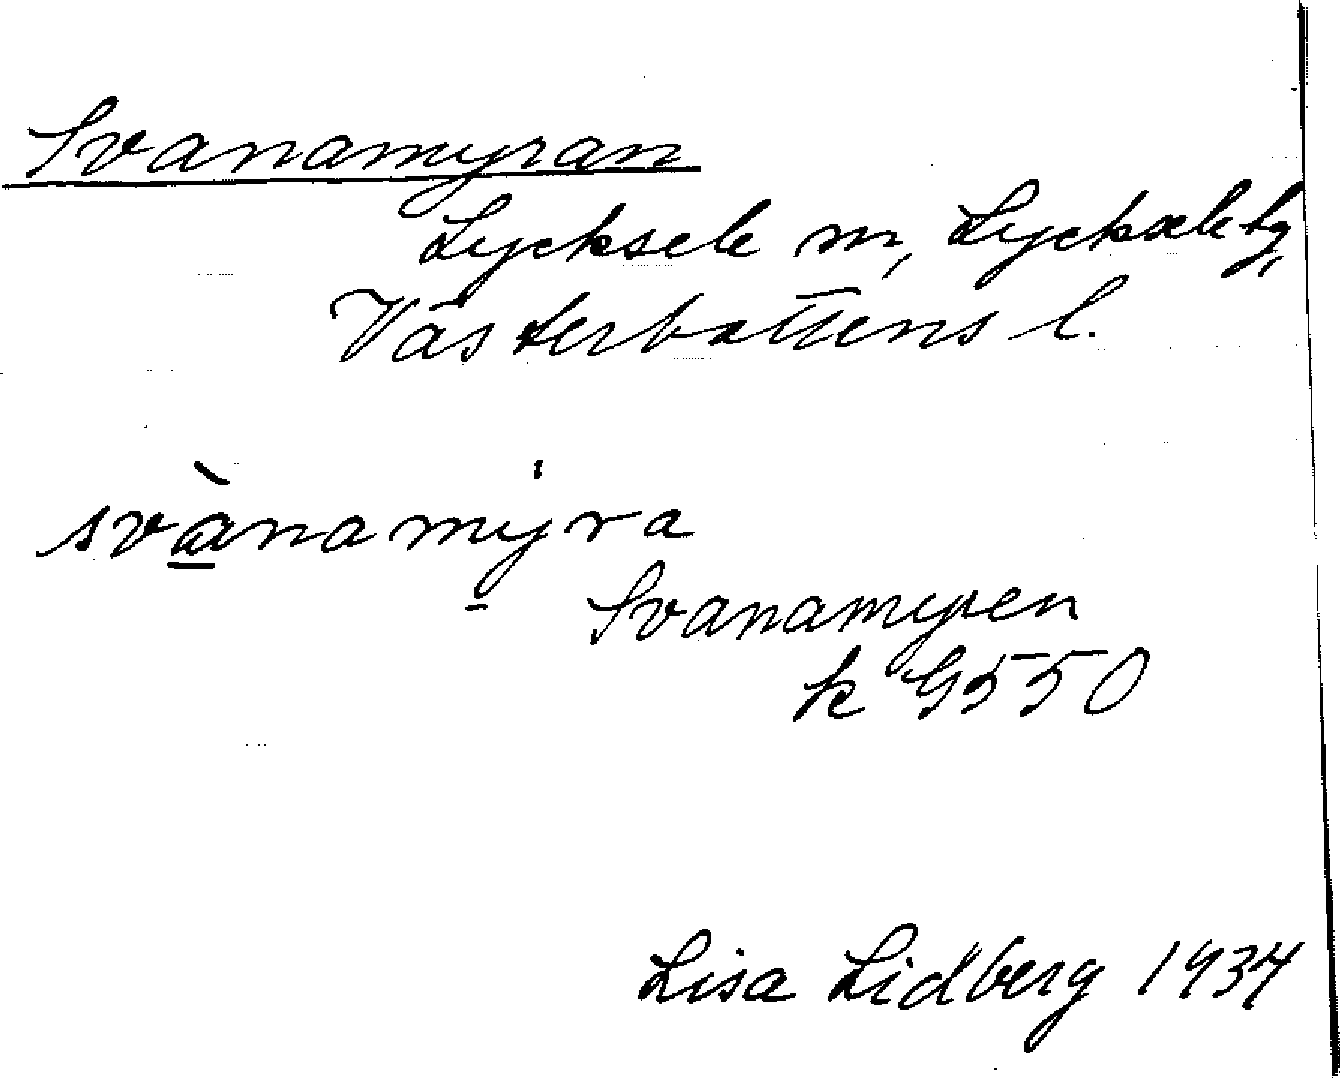 Svanamyran
Lycksele m, Lycksele tg,
Västerbottens l.
svà̱namy̱ra
Svanamyren
k G550
Lisa Lidberg 1934